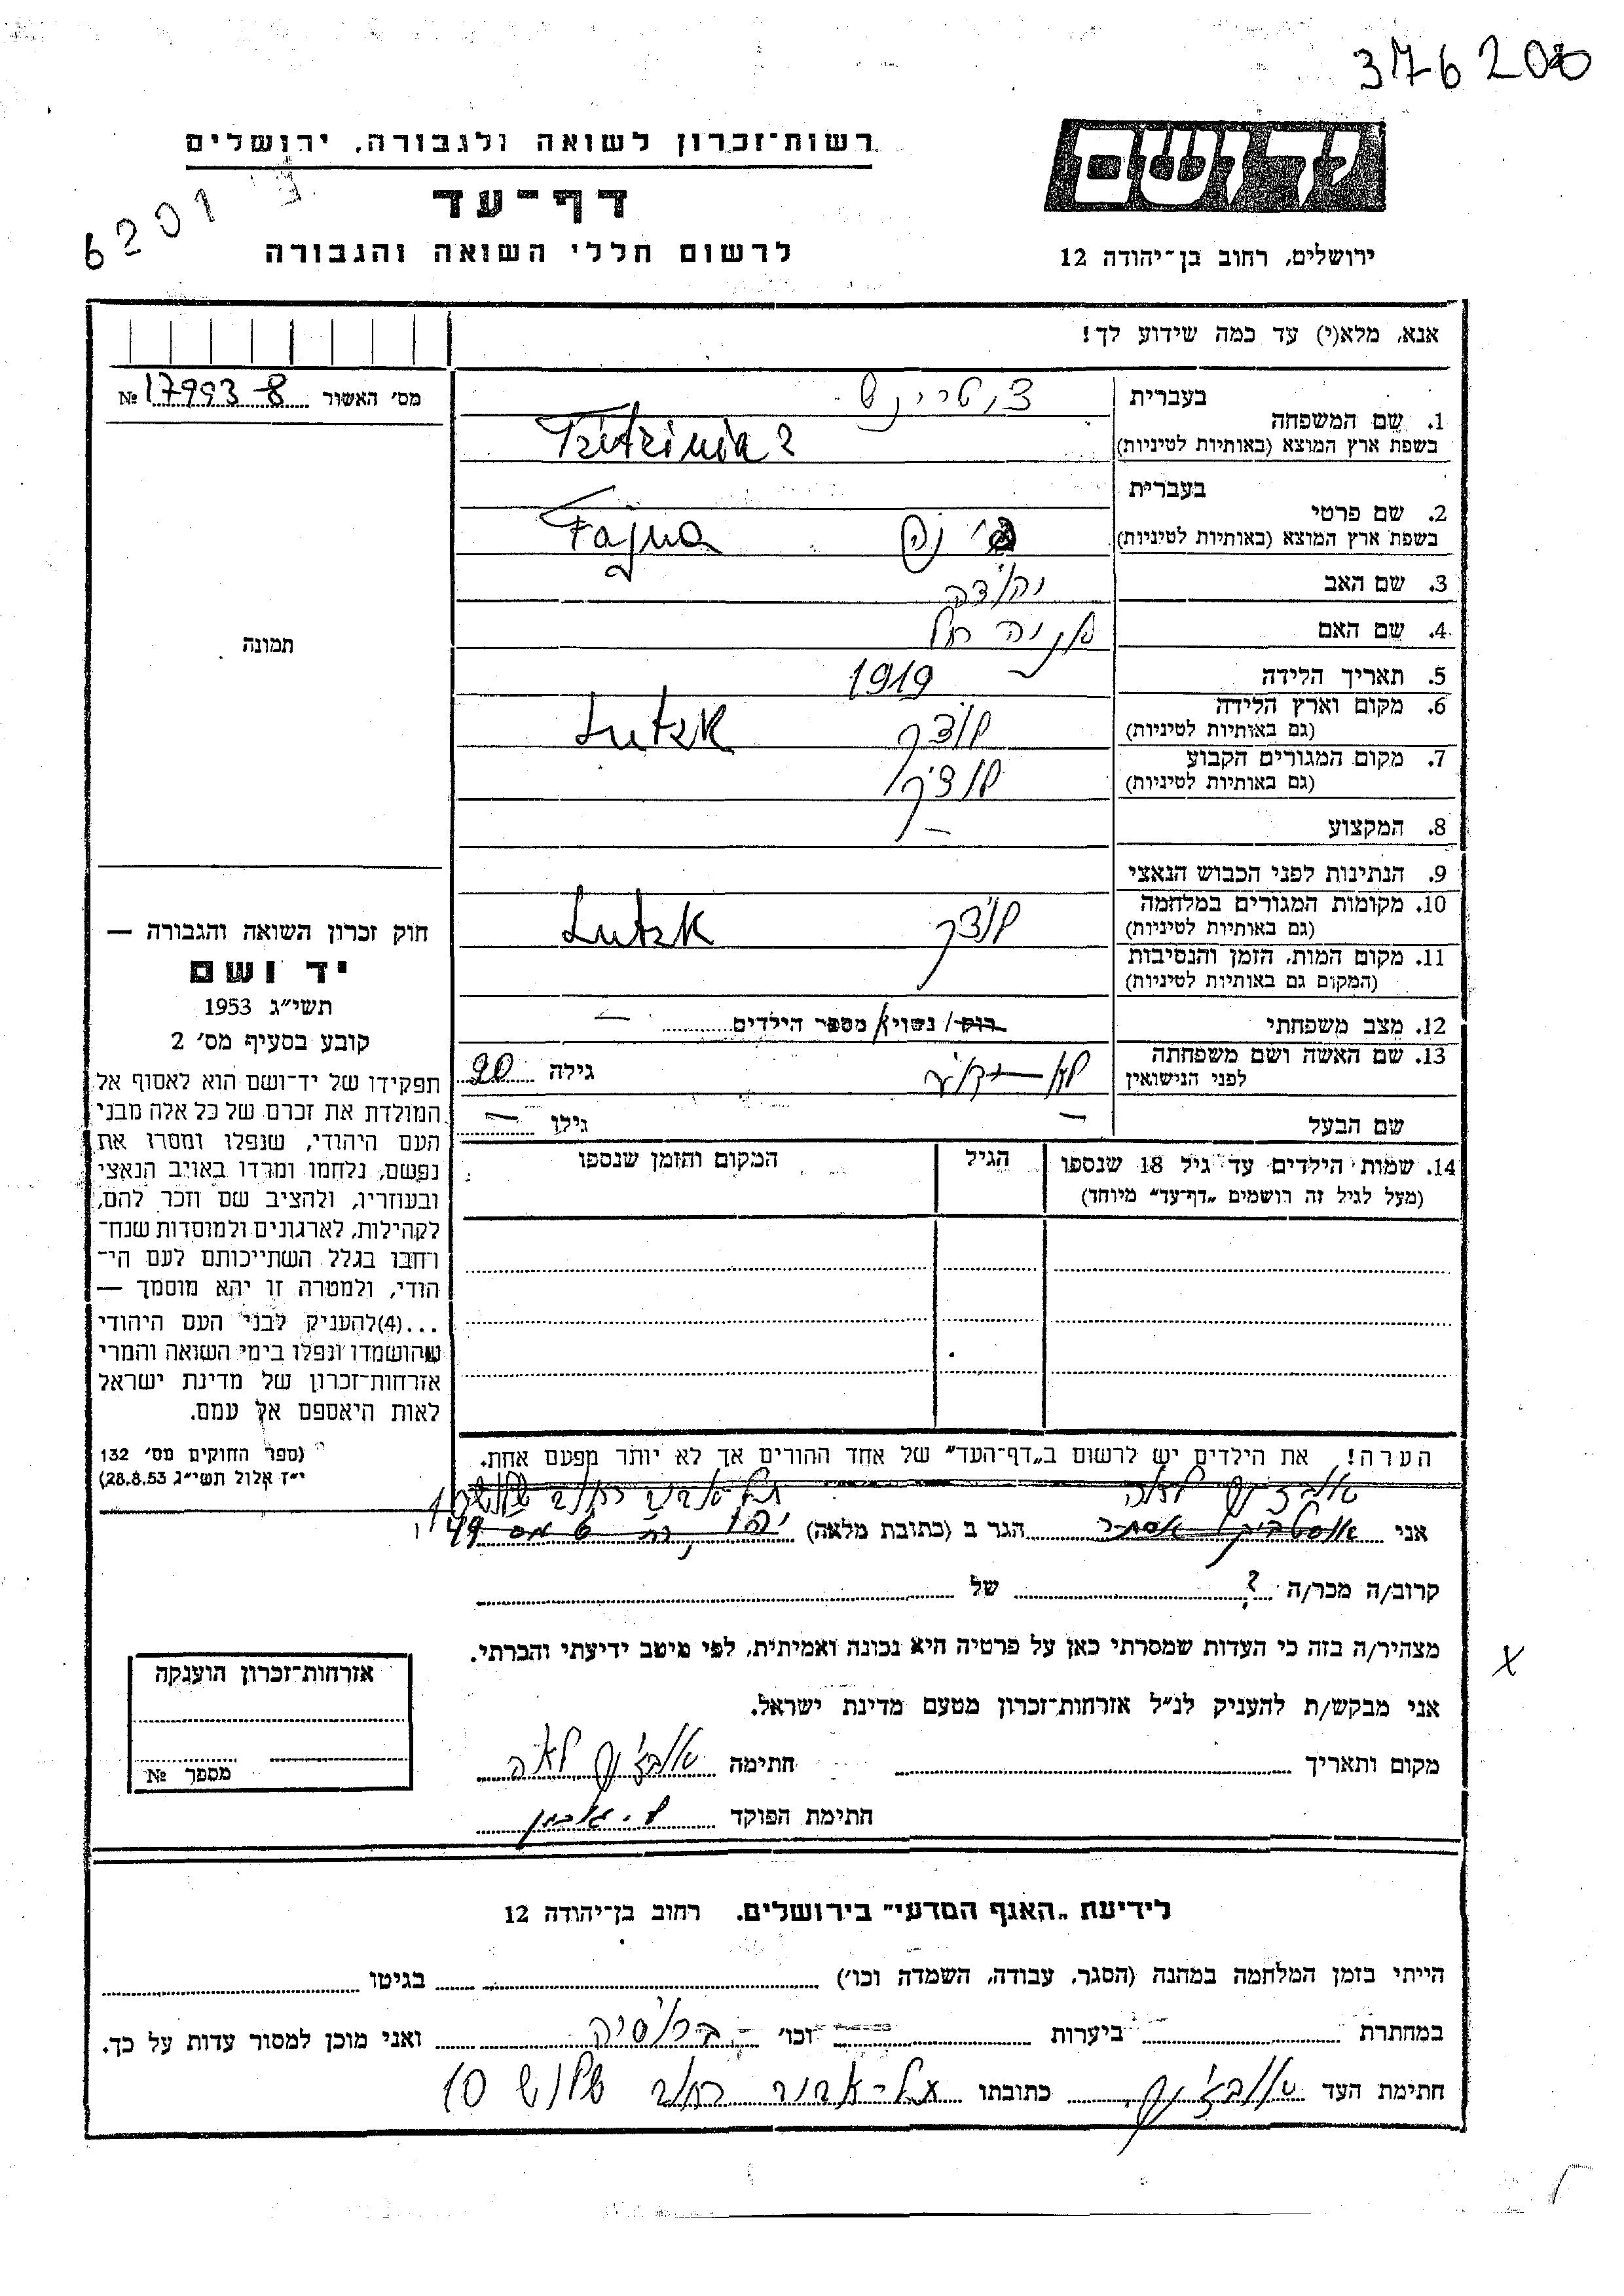 3176208
רשות־זכרון לשואה ולגבורה, ירושלים
יד ושם
דף־עד
6201
לרשום חללי השואה והגבורה
ירושלים, רחוב בן־יהודה 12
אנא, מלא(י) עד כמה שידוע לך!
מס׳ האשור № 17993-8
בעברית
1. שם המשפחה
בשפת ארץ המוצא (באותיות לטיניות)
בעברית
2. שם פרטי
בשפת ארץ המוצא (באותיות לטיניות) Fajna
3. שם האב יהודה
4. שם האם
5. תאריך הלידה 1919
6. מקום וארץ הלידה לוצק Lutzk
(גם באותיות לטיניות)
7. מקום המגורים הקבוע לוצק
(גם באותיות לטיניות)
8. המקצוע —
9. הנתינות לפני הכבוש הנאצי
10. מקומות המגורים במלחמה לוצק Lutzk
(גם באותיות לטיניות)
11. מקום המות, הזמן והנסיבות
(המקום גם באותיות לטיניות)
12. מצב משפחתי רווק/ נשוי/א מספר הילדים —
13. שם האשה ושם משפחתה
לפני הנישואין גילה 20
שם הבעל — גילו —
14. שמות הילדים עד גיל 18 שנספו
(מעל לגיל זה רושמים „דף־עד” מיוחד)
הגיל
המקום והזמן שנספו
תמונה
חוק זכרון השואה והגבורה —
יד ושם
תשי״ג 1953
קובע בסעיף מס׳ 2
תפקידו של יד־ושם הוא לאסוף אל
המולדת את זכרם של כל אלה מבני
העם היהודי, שנפלו ומסרו את
נפשם, נלחמו ומרדו באויב הנאצי
ובעוזריו, ולהציב שם וזכר להם,
לקהילות, לארגונים ולמוסדות שנח־
רחבו בגלל השתייכותם לעם הי־
הודי, ולמטרה זו יהא מוסמך —
...(4) להעניק לבני העם היהודי
שהושמדו ונפלו בימי השואה והמרי
אזרחות־זכרון של מדינת ישראל
לאות היאספם אל עמם.
(ספר החוקים מס׳ 132
י״ז אלול תשי״ג 28.8.53)
הערה! את הילדים יש לרשום ב„דף־העד” של אחד ההורים אך לא יותר מפעם אחת.
אני הגר ב (כתובת מלאה)
קרוב/ה מכר/ה ? של
מצהיר/ה בזה כי העדות שמסרתי כאן על פרטיה היא נכונה ואמיתית, לפי מיטב ידיעתי והכרתי.
X
אני מבקש/ת להעניק לנ״ל אזרחות־זכרון מטעם מדינת ישראל.
מקום ותאריך חתימה
חתימת הפוקד
אזרחות־זכרון הוענקה
מספר №
לידיעת „האגף המדעי” בירושלים. רחוב בן־יהודה 12
הייתי בזמן המלחמה במחנה (הסגר, עבודה, השמדה וכו׳) בגיטו
במחתרת ביערות וכו׳ ברוסיה ואני מוכן למסור עדות על כך.
חתימת העד כתובתו רחוב 10